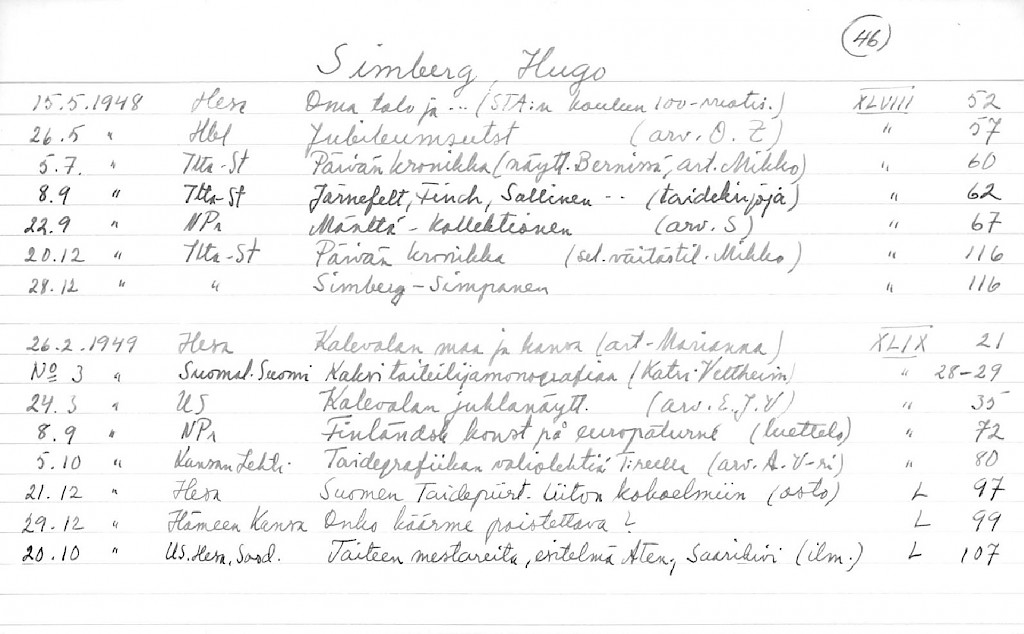 46
Simberg, Hugo
15.5.1948 Hesa Oma talo ja ... (STA:n koulun 100-vuotis.) XLVIII 52
26.5 " Hbl Jubileumsutst (arv. O. Z) " 57
5.7. " Ilta-St Päivän kronikka (näytt. Bernissä, art. Mikko) " 60
8.9 " Ilta-St Järnefelt, Finch, Sallinen -- (taidekirjoja) " 62
22.9 " NPr Mänttä-kollektionen (arv. S) " 67
20.12 " Ilta-St Päivän kronikka (sel. väitöstil. Mikko) " 116
28.12 " " Simberg-Simpanen " 116
26.2.1949 Hesa Kalevalan maa ja kansa (art. Marianna) XLIX 21
No 3 " Suomal. Suomi Kaksi taiteilijamonografiaa (Katri Veltheim) " 28-29
24.3 " US Kalevalan juhlanäytt. (arv. E.J.V) " 35
8.9 " NPr Finländsk konst på europaturné (luettelo) " 72
5.10 " Kansan Lehti. Taidegrafiikan valiolehtiä T:reella (arv. A. V-ri) " 80
21.12 " Hesa Suomen Taidepiirt. Liiton kokoelmiin (osto) L 97
29.12 " Hämeen Kansa Onko käärme poistettava? L 99
20.10 " US. Hesa, Sosd. Taiteen mestareita, esitelmä Aten, Saarikivi (ilm.) L 107